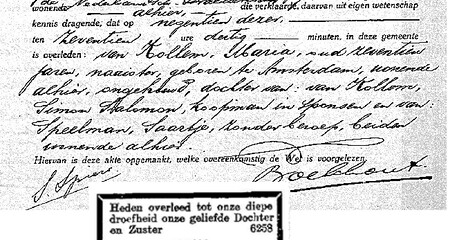 de Nederlandsch-
wonende alhier, die verklaarde, daarvan uit eigen wetenschap
kennis dragende, dat op negentien dezer,
ten zeventien ure dertig minuten, in deze gemeente
is overleden: van Kollem, Maria, oud zeventien
jaren, naaister, geboren te Amsterdam, wonende
alhier, ongehuwd, dochter van: van Kollem,
Simon Salomon, koopman in sponsen en van:
Speelman, Saartje, zonder beroep, beiden
wonende alhier.
Hiervan is deze akte opgemaakt, welke overeenkomstig de Wet is voorgelezen.
S. Spier Broekhout
Heden overleed tot onze diepe
droefheid onze geliefde Dochter
en Zuster 6258